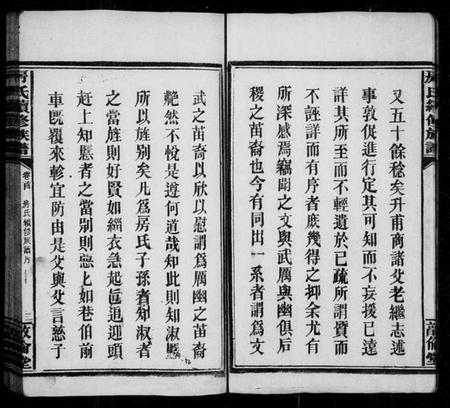 房氏續修族譜
又五十餘稔矣升甫商諸父老繼志述
事敦促進行定其可知而不妄援已遠
詳其所至而不輕遺於已疏所謂質而
不誣詳而有序者庶幾得之抑余尤有
所深感焉竊聞之文與武厲與幽俱后
稷之苗裔也今有同出一系者謂為文
敦倫堂
武之苗裔以欣以慰謂為厲幽之苗裔
艴然不悅是遵何道哉知此則知淑慝
所以旌別矣凡為房氏子孫者知淑者
之當旌則好賢如緇衣急起直追迎頭
赶上知慝者之當別則惡惡上如巷伯前
車既覆來軫宜防由是父與父言慈子
房氏續修族譜
卷首
房氏續修族譜序
三
敦倫堂